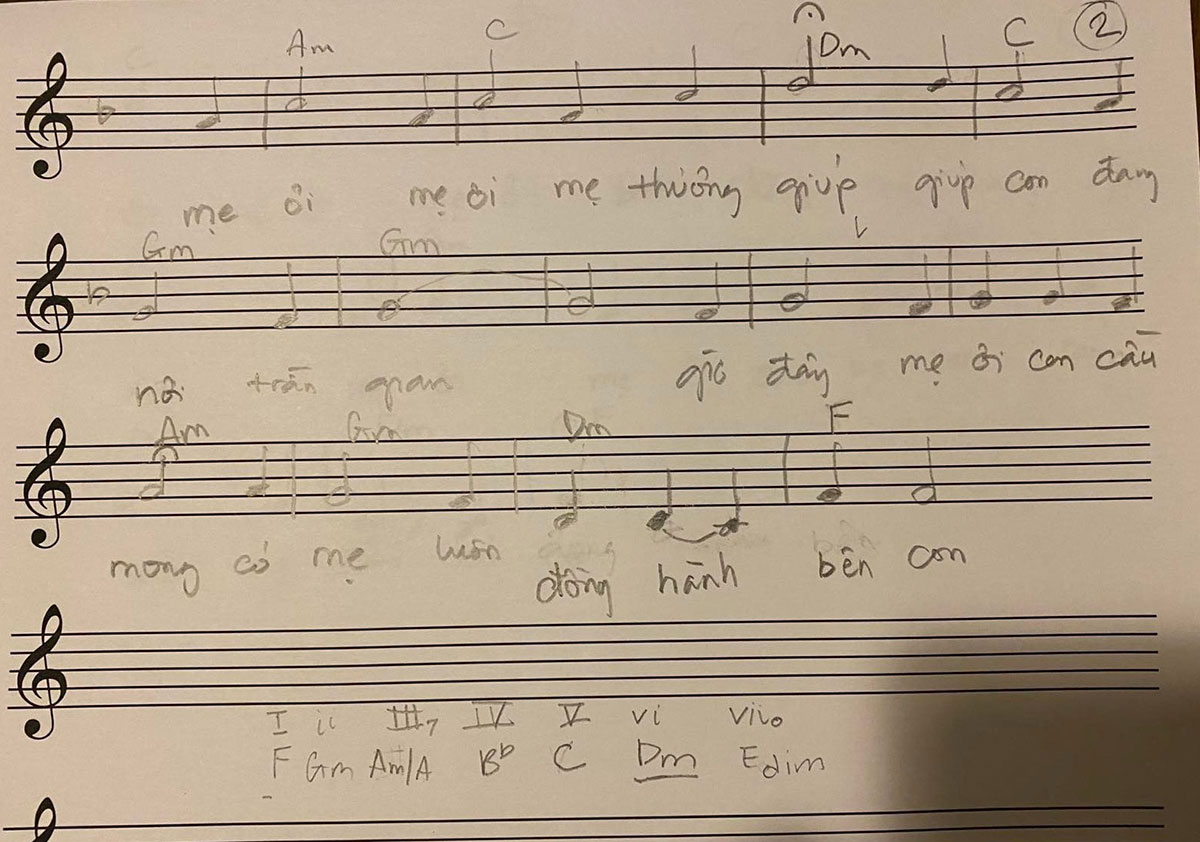 Am C Dm C 2
mẹ ôi mẹ ôi mẹ thương giúp giúp con đang
Gm Gm
nơi trần gian giờ đây mẹ ôi con cầu
Am Gm Dm F
mong có mẹ luôn đồng hành bên con
I ii III7 IV V vi viio
F Gm Am/A Bb C Dm Edim